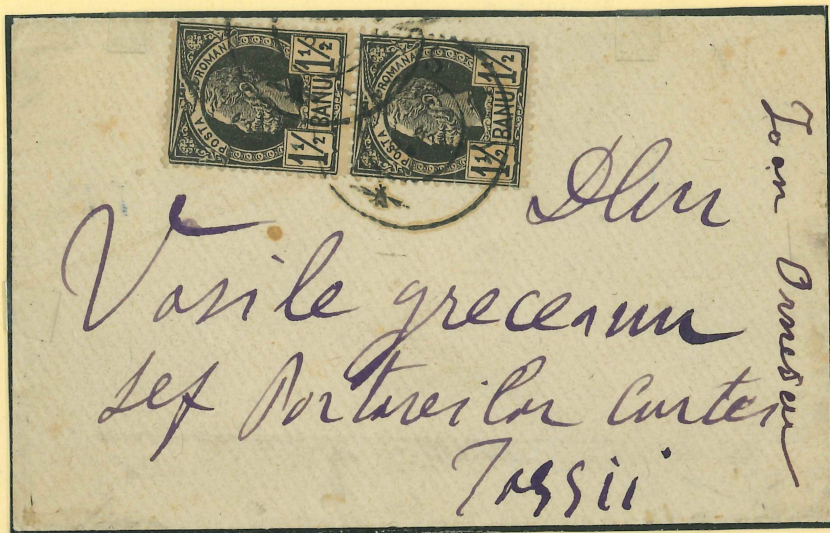 POSTA ROMANA 1½ BANU 1½
POSTA ROMANA 1½ BANU 1½
Dlui
Vasile greceanu
sef Portareilor Curtei
Iassii
Ioan